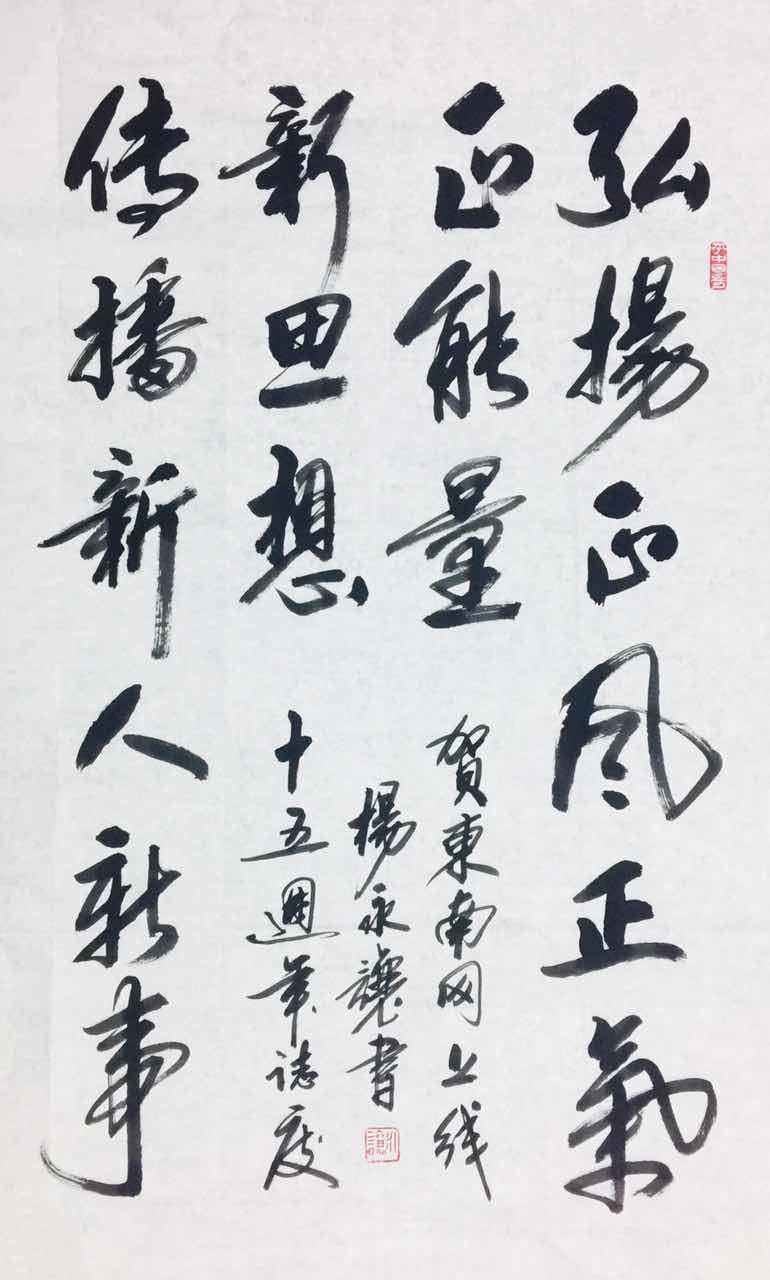 弘揚正风正氣
正能量
传播新人新事
新思想
賀東南网上线
十五週年誌庆
楊永讓書